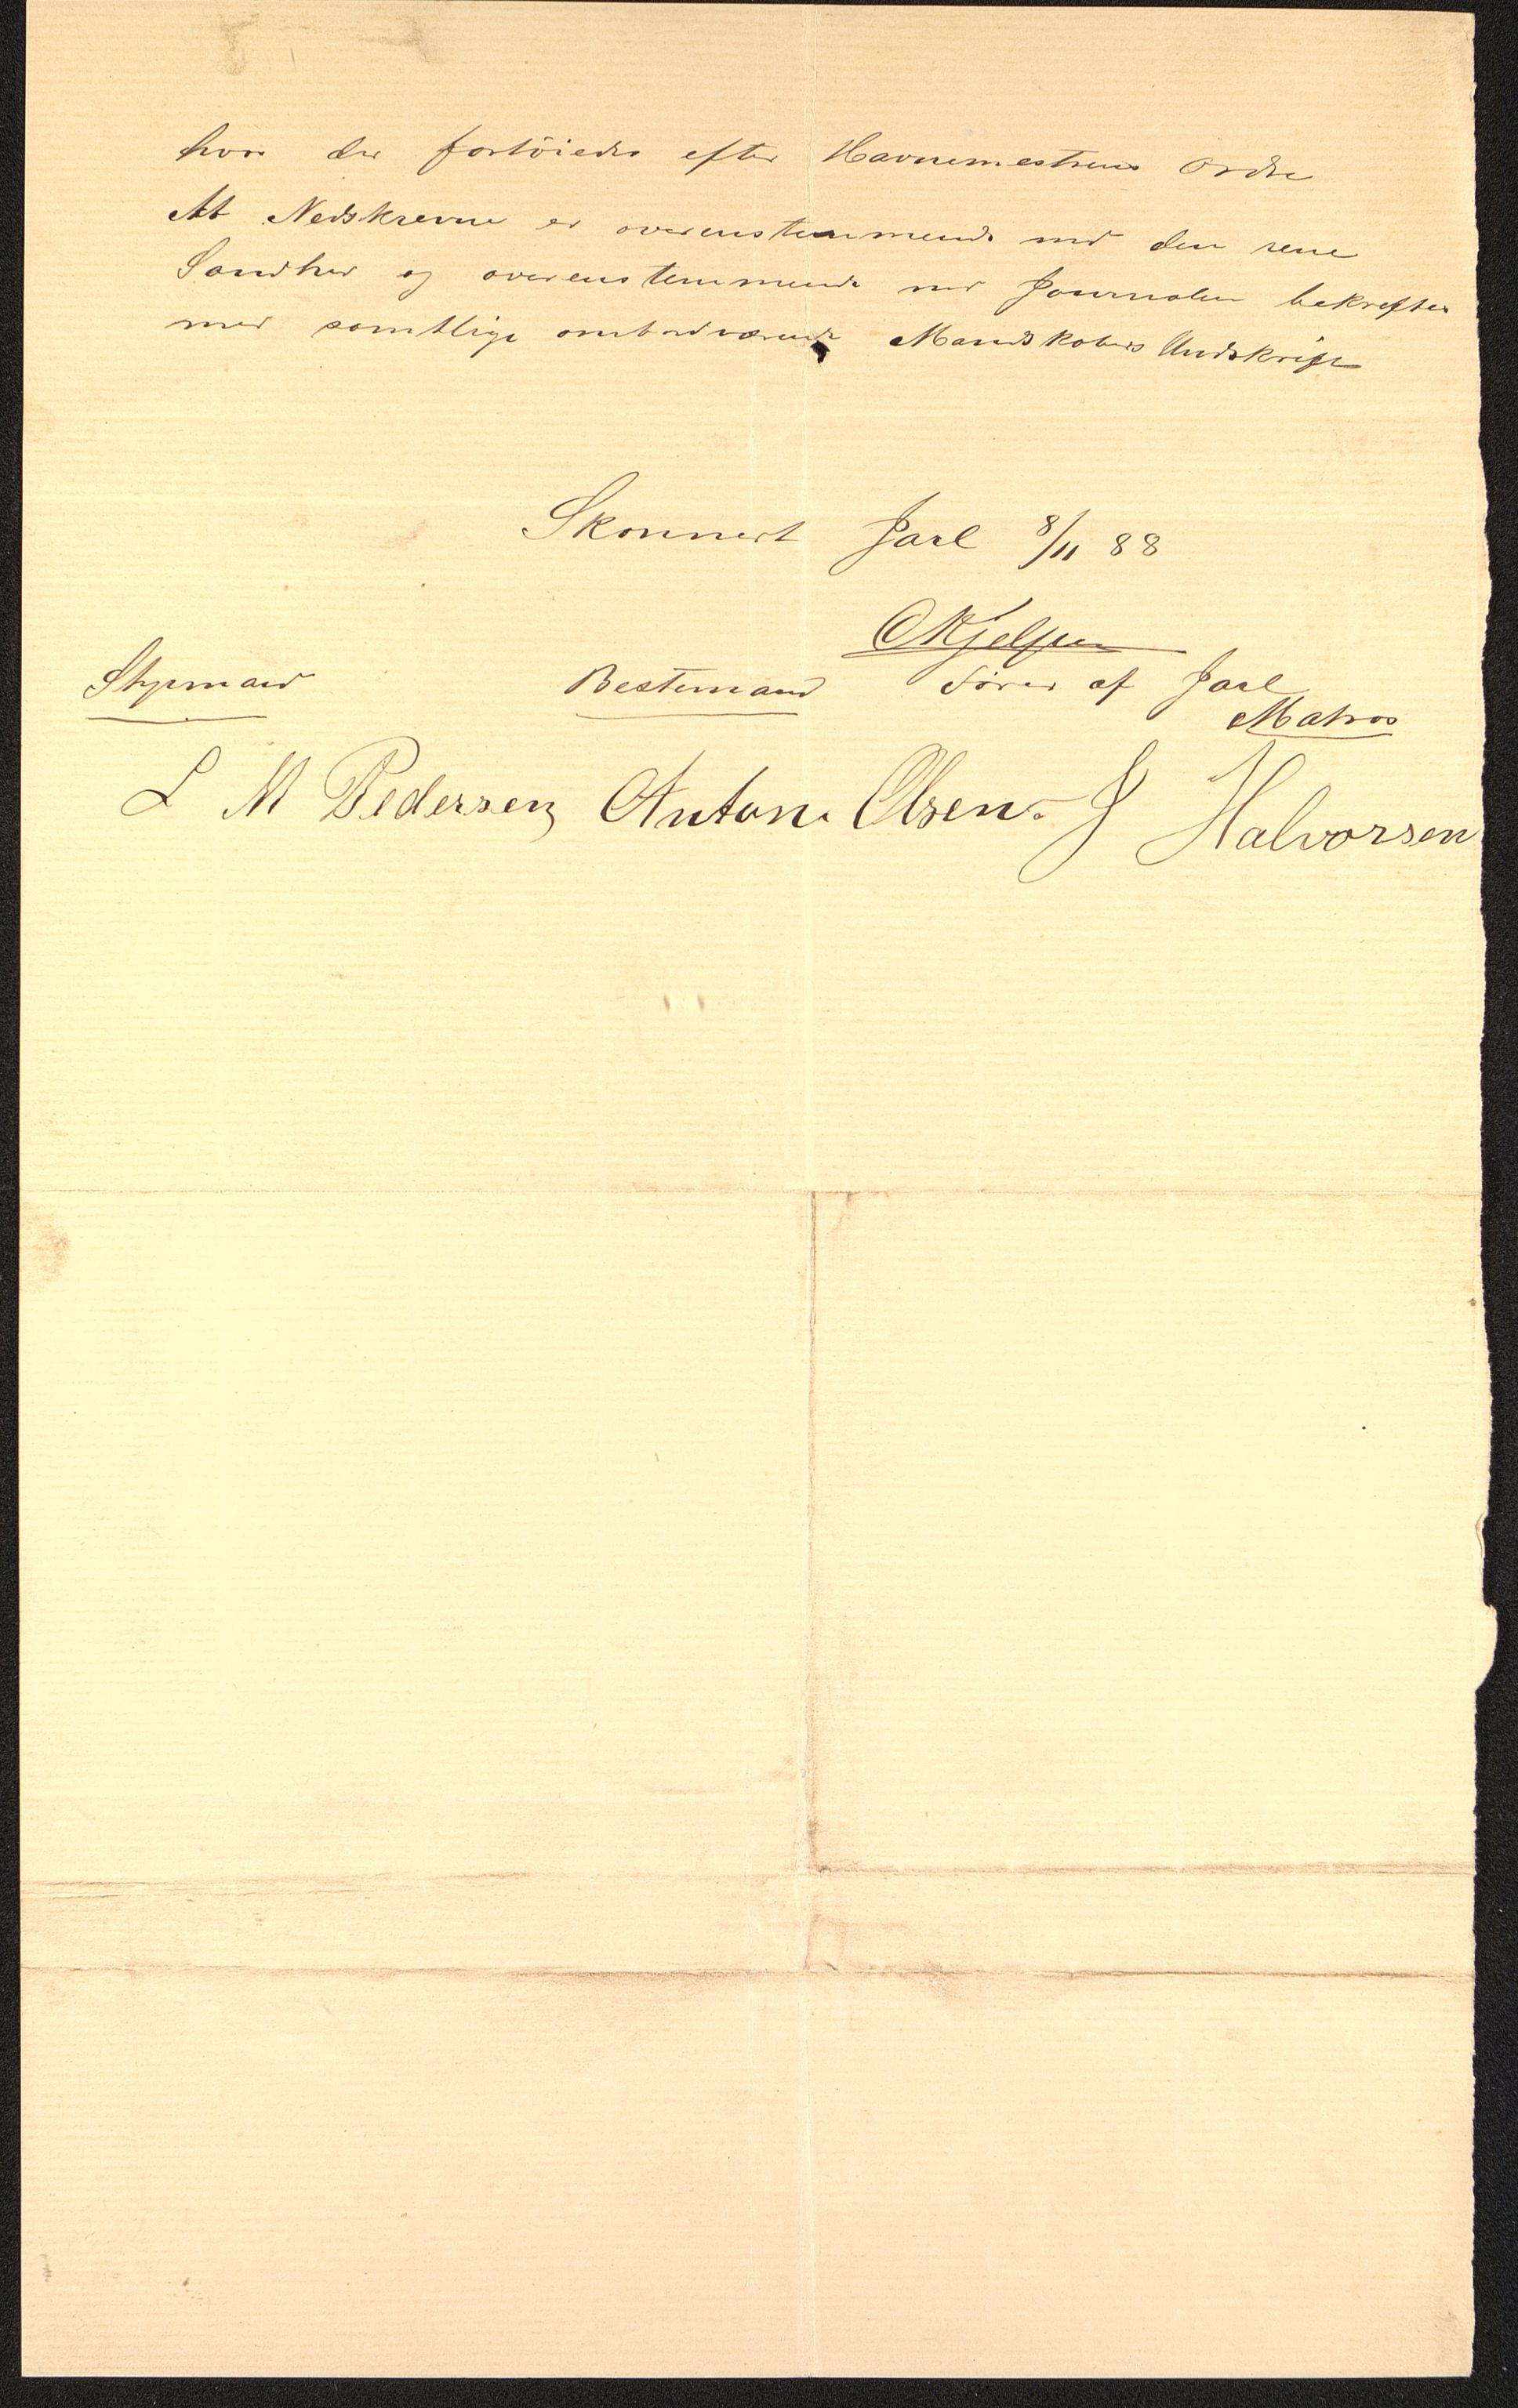 hvor der fortöiedes efter Havnemestrens Ordre
At Nedskrevne er overenstemmende med den rene
Sandhed og overenstemmende med Journalen bekreftes
med samtlige ombordværende Mandskabers Undskrift
Skonnert Jarl 8/11 88
Fører af Jarl
Styrmand Bestemand Matros
L M Pedersen Anton Olsen. J Halvorsen